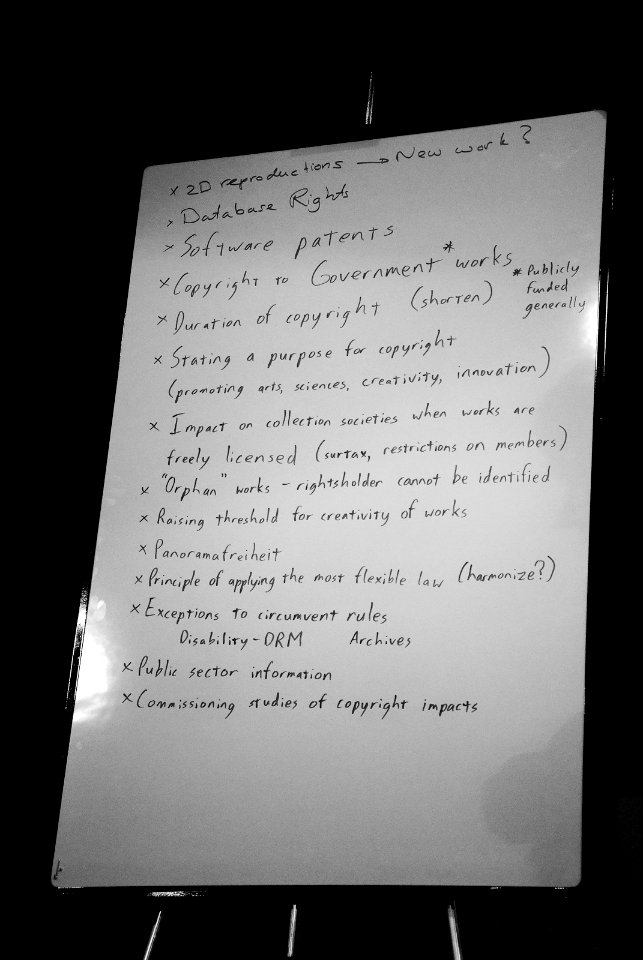 x 2D reproductions → New work?
x Database Rights
x Software patents
x Copyright to Government* works
* Publicly
funded
generally
x Duration of copyright (shorten)
x Stating a purpose for copyright
(promoting arts, sciences, creativity, innovation)
x Impact on collection societies when works are
freely licensed (surtax, restrictions on members)
x "Orphan" works - rightsholder cannot be identified
x Raising threshold for creativity of works
x Panoramafreiheit
x Principle of applying the most flexible law (harmonize?)
x Exceptions to circumvent rules
Disability-DRM Archives
x Public sector information
x Commissioning studies of copyright impacts